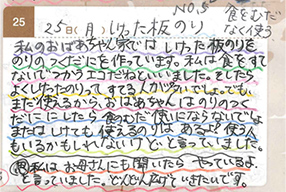 NO.5
食をむだなく使う
25
25日(月)しけった板のり
私のおばあちゃん家では しけった板のりを
のりのつくだにを作っています。私は食をすて
ないでつかうエコだねといいました。そしたら
よくしけったのりって、すてる人が多いでしょ。でも、
まだ使えるから、おばあちゃんはのりのつく
だににしたら食のむだ使いにならないでしょ
またはしけても使えるのりはあるよ?使う人
もいるかもしれないけどと言っていました。
私はお母さんにも聞いたら やっているよ
と言っていました。どんどん広げていきたいです。